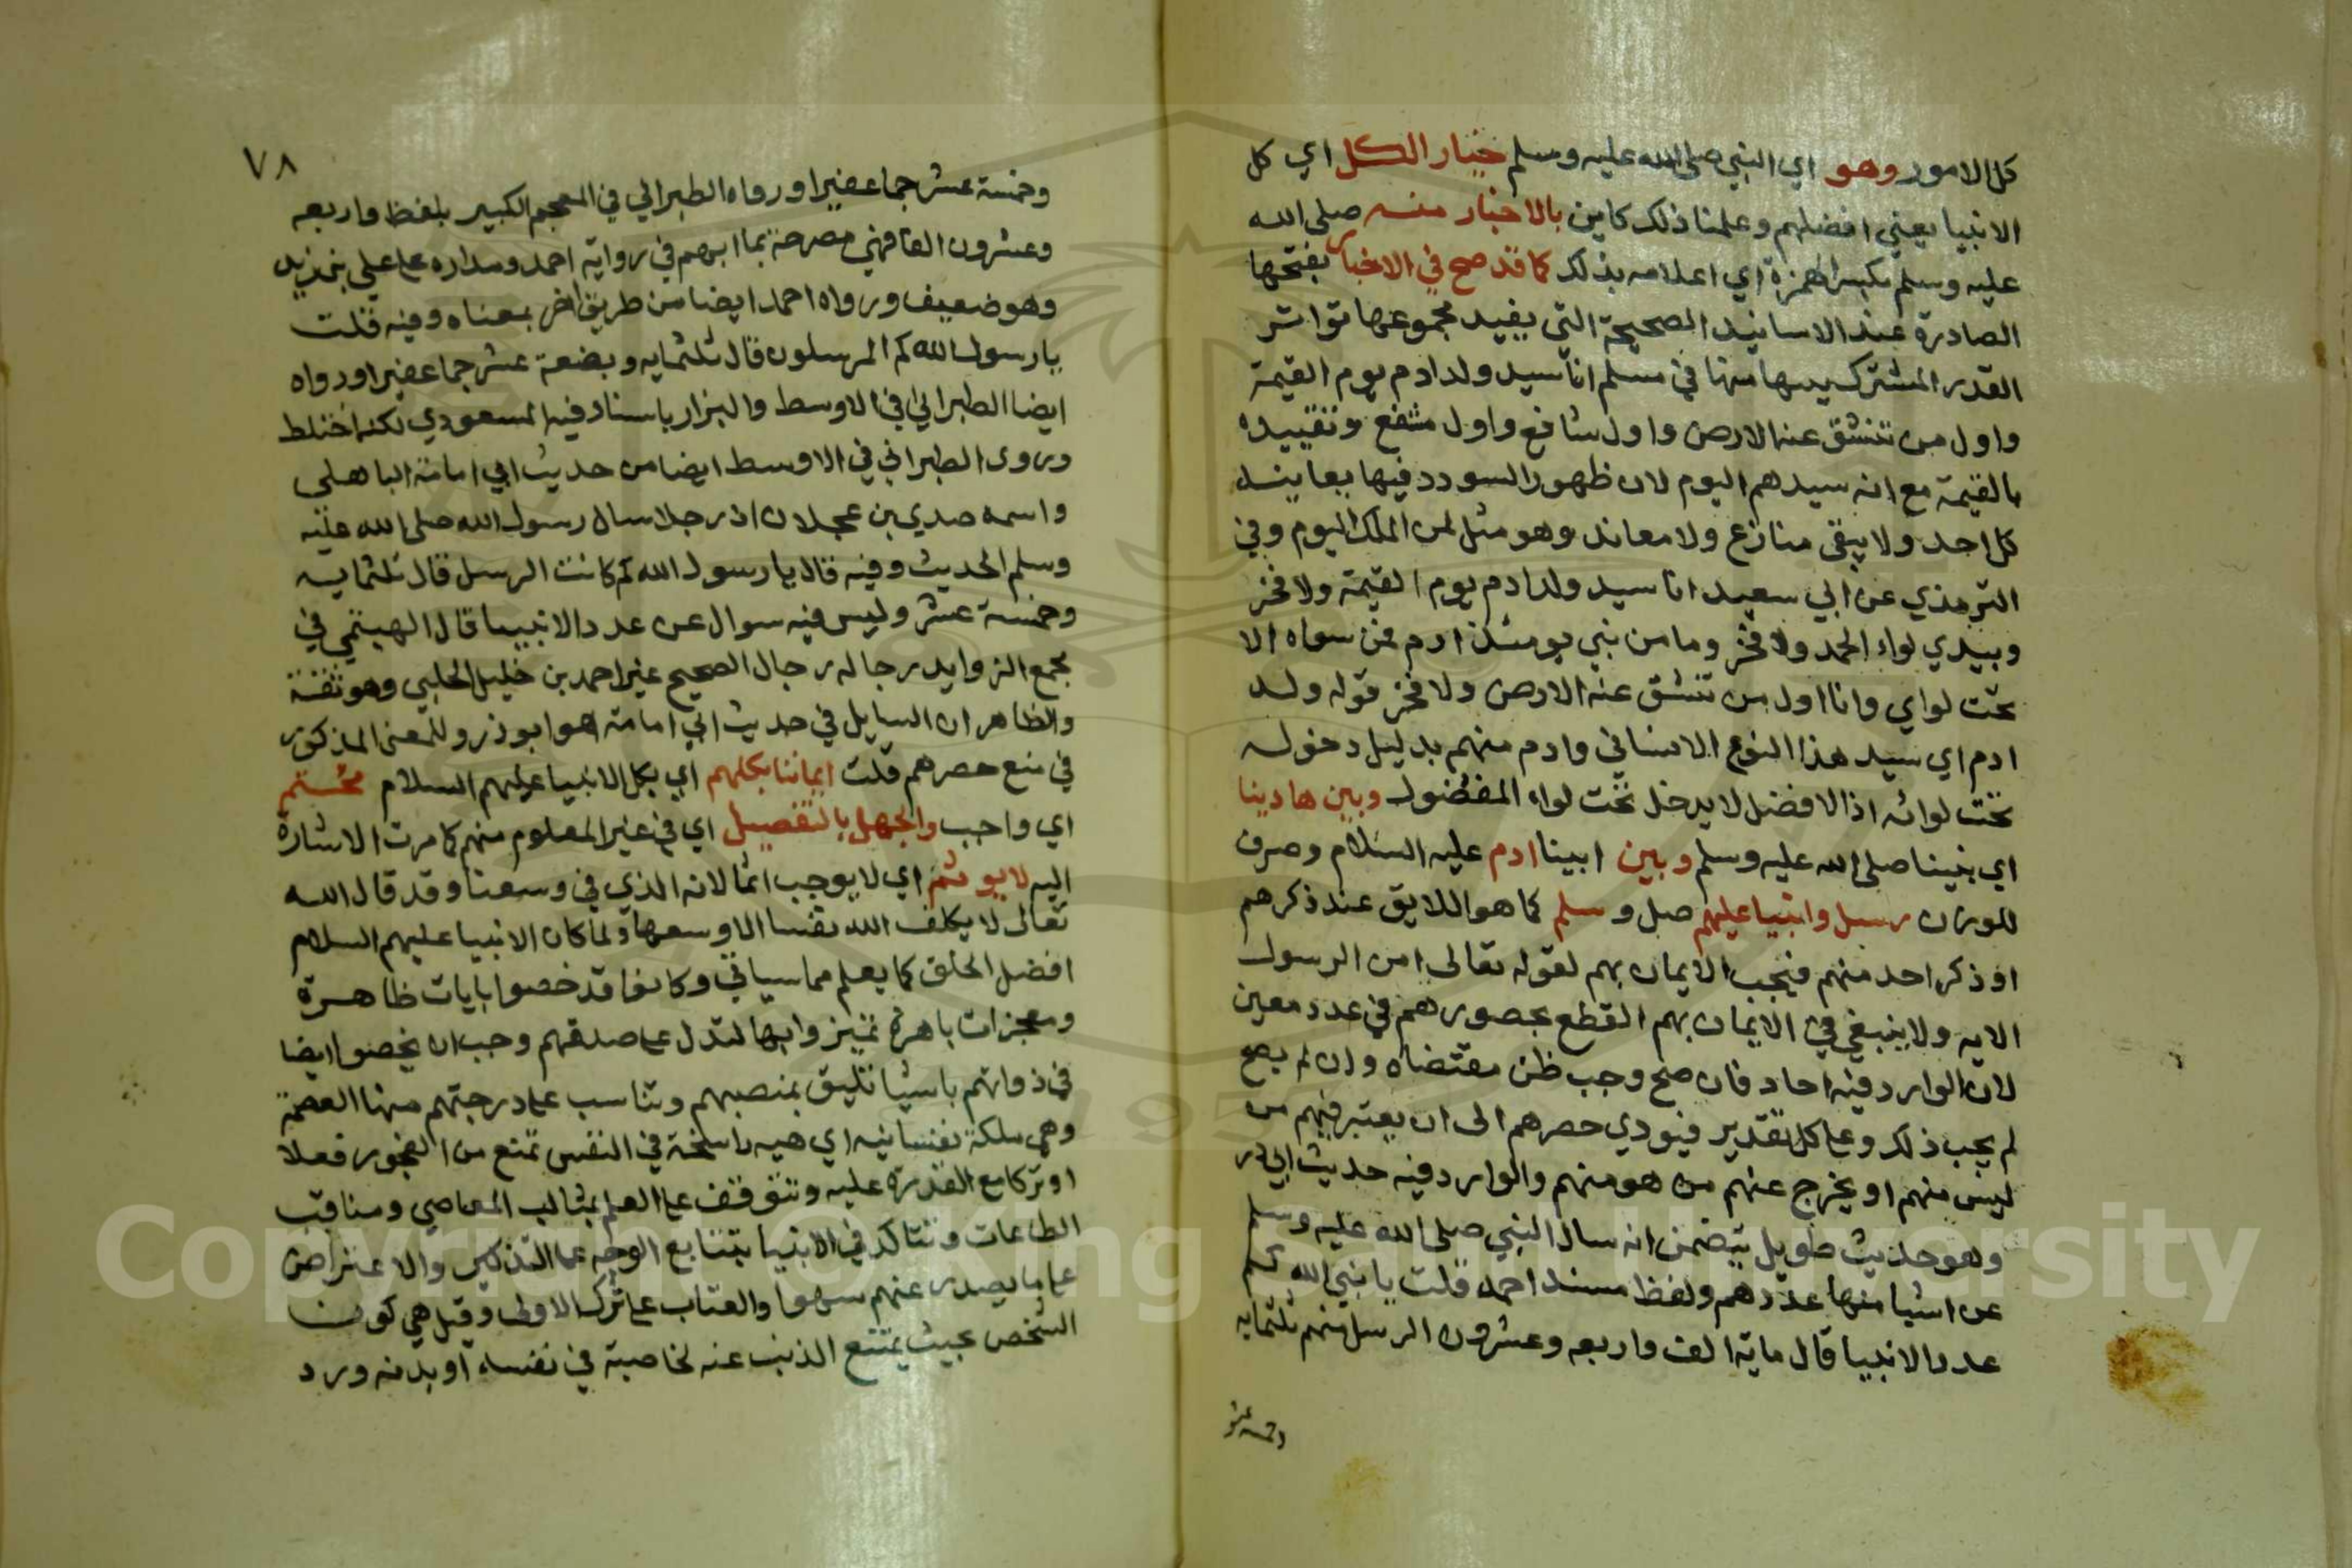 كل الامور وهو اي النبي صلى الله عليه وسلم خيار الكل اي كل
الانبيا يعني افضلهم وعلمنا ذلك كاين بالاخبار منه صلى الله
عليه وسلم بكسر الهمزة اي اعلامه بذلك كما قد صح في الاخبار بفتحها
الصادرة عند الاسانيد الصحيحة التي يفيد مجموعها تواتر
القدر المشترك منها في مسلم انا سيد ولد ادم يوم القيمة
واول من تنشق عنه الارض واول شافع واول مشفع وتقييده
بالقيمة مع انه سيدهم اليوم لان ظهور السودد فيها يعاينه
كل احد ولا يبقى منازع ولا معاند وهو مثل لمن الملك اليوم وفي
الترمذي عن ابي سعيد انا سيد ولد ادم يوم القيمة ولا فخر
وبيدي لواء الحمد ولا فخر وما من نبي يومئذ ادم فمن سواه الا
تحت لواي وانا اول من تنشق عنه الارض ولا فخر قوله ولد
ادم اي سيد هذا النوع الانساني وادم منهم بدليل دخوله
تحت لوائه اذ الافضل لا يدخل تحت لواء المفضول وبين هادينا
اي نبينا صلى الله عليه وسلم وبين ابينا ادم عليه السلام وصرف
للوزن رسل وانبيا عليهم صل وسلم كما هو اللايق عند ذكرهم
او ذكر احد منهم فيجب الايمان بهم لقوله تعالى امن الرسول
الايه ولا ينبغي في الايمان بهم القطع بحصرهم في عدد معين
لان الوارد فيه احاد فان صح وجب ظن مقتضاه وان لم يصح
لم يجب ذلك وعلى كل تقدير فيودي حصرهم الى ان يعتبر فيهم من
ليس منهم او يخرج عنهم من هو منهم والوارد فيه حديث ابي ذر
وهو حديث طويل يتضمن انه سال النبي صلى الله عليه وسلم
عن اشيا منها عددهم ولفظ مسند احمد قلت يا نبي الله كم
عدد الانبيا قال ماية الف واربعه وعشرون الرسل منهم ثلثمايه
وخمسه عشر
٧٨
وخمسة عشر جما غفيرا ورواه الطبراني في المعجم الكبير بلفظ واربعه
وعشرون الفا فهي مصرحة بما ابهم في رواية احمد ومداره على علي بن يزيد
وهو ضعيف ورواه احمد ايضا من طريق اخر بمعناه وفيه قلت
يا رسول الله كم المرسلون قال ثلثمايه وبضعة عشر جما غفيرا ورواه
ايضا الطبراني في الاوسط والبزار باسناد فيه المسعودي لكنه اختلط
وروى الطبراني في الاوسط ايضا من حديث ابي امامة الباهلي
واسمه صدي بن عجلان ان رجلا سال رسول الله صلى الله عليه
وسلم الحديث وفيه قال يا رسول الله كم كانت الرسل قال ثلثمايه
وخمسة عشر وليس فيه سوال عن عدد الانبيا قال الهيثمي في
مجمع الزوايد رجاله رجال الصحيح غير احمد بن خليل الحلبي وهو ثقة
والظاهر ان السايل في حديث ابي امامة هو ابو ذر وللمعنى المذكور
في منع حصرهم قلت ايماننا بكلهم اي بكل الانبيا عليهم السلام محتتم
اي واجب والجهل بالتفصيل اي في غير المعلوم منهم كما مرت الاشارة
اليه لا يوثم اي لا يوجب اثما لانه الذي في وسعنا وقد قال الله
تعالى لا يكلف الله نفسا الا وسعها ولما كان الانبيا عليهم السلام
افضل الخلق كما يعلم مما سياتي وكانوا قد خصوا بايات ظاهرة
ومعجزات باهرة تميزوا بها لتدل على صدقهم وجب ان يخصوا ايضا
في ذواتهم باشيا تليق بمنصبهم وتناسب على درجتهم منها العصمة
وهي ملكة نفسانيه اي هيه راسخة في النفس تمنع من الفجور فعلا
او تركا مع القدرة عليه وتتوقف على العلم بمثالب المعاصي ومناقب
الطاعات وتتاكد في الانبيا بتتابع الوحي على التذكير والاعتراض
على ما يصدر عنهم سهوا والعتاب على ترك الاولى وقيل هي كون
الشخص بحيث يمتنع الذنب عنه لخاصية في نفسه او بدنه ورد
Copyright © King Saud University